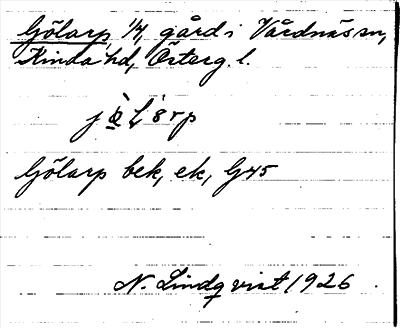 Gölarp, 1/4, gård i Vårdnäs sn,
Kinda hd, Österg. l.
Gölarp bek, ek, G45
N. Lindqvist 1926.